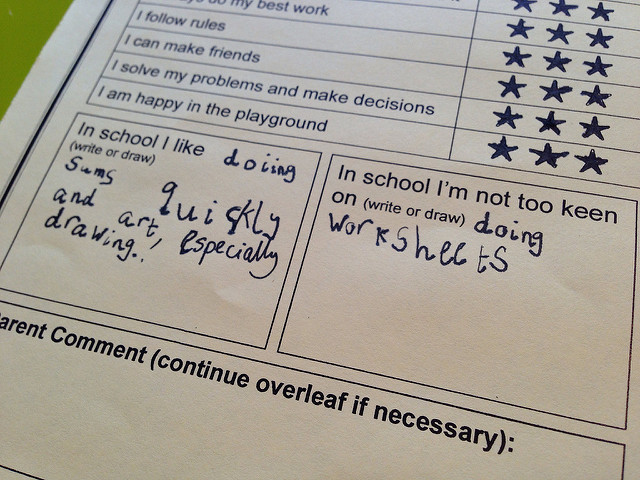 my best work
I follow rules
I can make friends
I solve my problems and make decisions
I am happy in the playground
In school I like doiing
(write or draw)
sums quickly
and art, especially
drawing..
In school I'm not too keen
on (write or draw) doing
worksheets
arent Comment (continue overleaf if necessary):